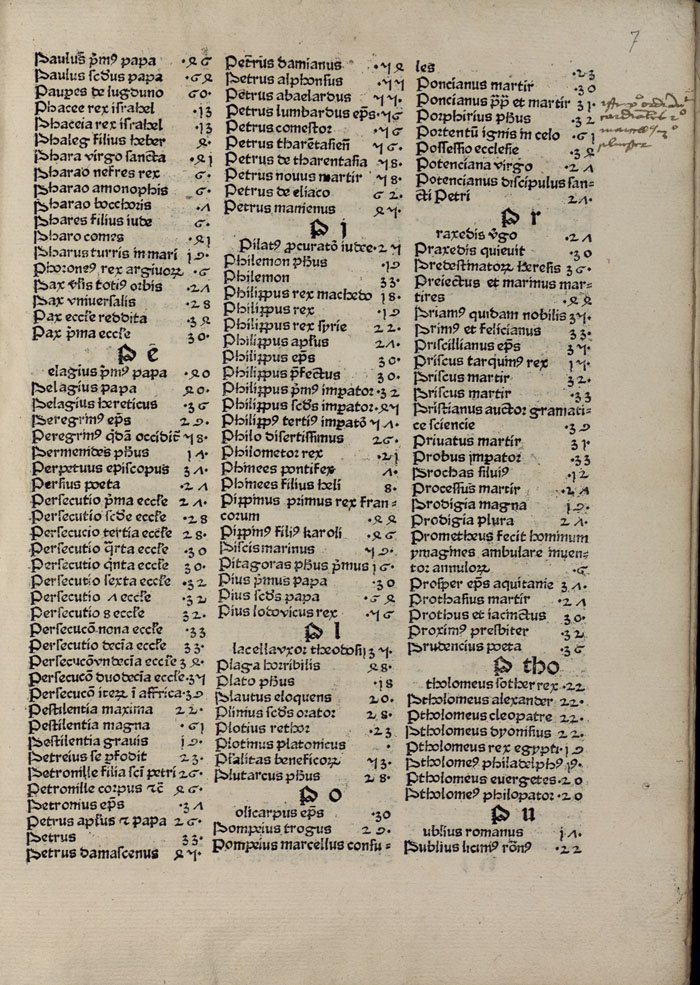 7
Paulus p̄m9 papa ·86
Paulus sc̄dus papa ·68
Paupes de lugduno 60·
Phacee rex israhel ·13
Phaceia rex israhel ·13
Phaleg filius heber 8·
Phara virgo sancta ·81
Pharao nefres rex 6·
Pharao amonophis 6·
Pharao bocchoris ·Λ
Phares filius iude 6·
Pharo comes ·81
Pharus turris in mari 19·
Phorone9 rex argiuoꝝ ·6
Pax vl̄is toti9 orbis ·2Λ
Pax vniuersalis ·28
Pax eccl̄e reddita ·38
Pax p̄ma eccl̄e 30·
Pe
elagius p̄m9 papa ·80
Pelagius papa 80·
Pelagius hereticus ·36
Peregrin9 ep̄s 29·
Peregrin9 q̄dā occidit̄ 48·
Permenides ph̄us 14·
Perpetuus episcopus 3Λ·
Persius poeta ·2Λ
Persecutio p̄ma eccl̄e 2Λ·
Persecutio sc̄de eccl̄e ·28
Persecucio tertia eccl̄e 28·
Persecutio q̄rta eccl̄e ·30
Persecutio q̄nta eccl̄e 30·
Persecutio sexta eccl̄e ·32
Persecutio Λ eccl̄e ·32
Persecutio 8 eccl̄e 32·
Persecucō nona eccl̄e ·33
Persecutio decīa eccl̄e 33·
Persecucō vndecīa eccl̄e 38·
Persecucō duodecīa eccl̄e·34
Persecucō iteꝝ ī affrica·39
Pestilentia maxima 22·
Pestilentia magna ·61
Pestilentia grauis 19·
Petreius se p̄fodit 23·
Petronille filia sc̄i petri 26·
Petronille corpus ⁊c̄ 86·
Petronius ep̄s ·3Λ
Petrus apl̄us ⁊ papa 26·
Petrus 33·
Petrus damascenus 84·
Petrus damianus ·48
Petrus alphonsus ·44
Petrus abaelardus 44·
Petrus lumbardus ep̄s·46
Petrus comestor ·46
Petrus tharētasiēn 46·
Petrus de tharentasia 48·
Petrus nouus martir 48·
Petrus de eliaco 62·
Petrus mamenus 84·
Pi
Pilat9 p̄curatō iudee·24
Philemon ph̄us ·19
Philemon 33·
Philippus rex machedo 18·
Philippus rex ·19
Philippus rex sirie 22·
Philippus apl̄us 2Λ·
Philippus ep̄s 30·
Philippus p̄fectus 30·
Philippus p̄m9 imp̄ator·32
Philippus sc̄ds imp̄ator·84
Philipp9 terti9 imp̄atō 4Λ·
Philo disertissimus 26·
Philometor rex ·21
Phinees pontifex Λ·
Phinees filius heli 8·
Pippinus primus rex fran-
corum ·88
Pippin9 fili9 karoli ·86
Piscis marinus 49·
Pitagoras ph̄us p̄mus 16·
Pius p̄mus papa ·30
Pius sc̄ds papa ·68
Pius lodovicus rex ·46
Pl
lacella vxor theodosij 34·
Plaga horribilis 88·
Plato ph̄us ·18
Plautus eloquens 20·
Plinius sc̄ds orator 28·
Plotius rethor ·23
Plotinus platonicus ·
Pl̄alitas beneficoꝝ 43·
Plutarcus ph̄us 28·
Po
olicarpus ep̄s ·30
Pompeius trogus 29·
Pompeius marcellus consu-
les ·23
Poncianus martir ·30
Poncianus p̄p̄ et martir 31·
Porphirius ph̄us ·32
Portentū ignis in celo ·61
Possessio ecclesie ·38
Potenciana virgo ·2Λ
Potencianus discipulus san-
cti Petri 2Λ·
Pr
raxedis v̄go ·2Λ
Praxedis quieuit ·30
Predestinatoꝝ heresis 36·
Preiectus et marinus mar-
tires ·88
Priam9 quidam nobilis 34·
Prim9 et felicianus 33·
Priscillianus ep̄s 34·
Priscus tarquini9 rex 14·
Priscus martir 32·
Priscus martir ·33
Pristianus auctor gramati-
ce sciencie ·39
Priuatus martir 31·
Probus imp̄ator ·33
Prochas silui9 ·12
Processus martir ·2Λ
Prodigia magna 19·
Prodigia plura 2Λ·
Prometheus fecit hominum
ymagines ambulare inuen-
tor annuloꝝ ·6
Prosper ep̄s aquitanie 3Λ·
Prothasius martir ·2Λ
Prothus et iacinctus 30·
Proxim9 presbiter ·32
Prudencius poeta ·36
Ptho
tholomeus sother rex ·22
Ptholomeus alexander 22·
Ptholomeus cleopatre 22·
Ptholomeus dyonisius 22·
Ptholomeus rex egypti·19
Ptholome9 philadelph9 19·
Ptholomeus euergetes·20
Ptholome9 philopator·20
Pu
ublius romanus 14·
Publius licini9 rōn9 ·22